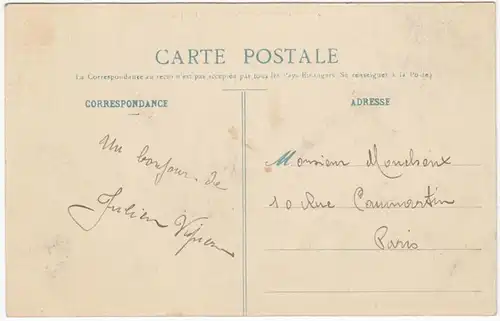 CARTE POSTALE
La Correspondance au recto n'est pas acceptée par tous les Pays Étrangers. Se renseigner à la Poste.
CORRESPONDANCE
ADRESSE
Un bonjour de
Julien
Monsieur
10 Rue Caumartin
Paris